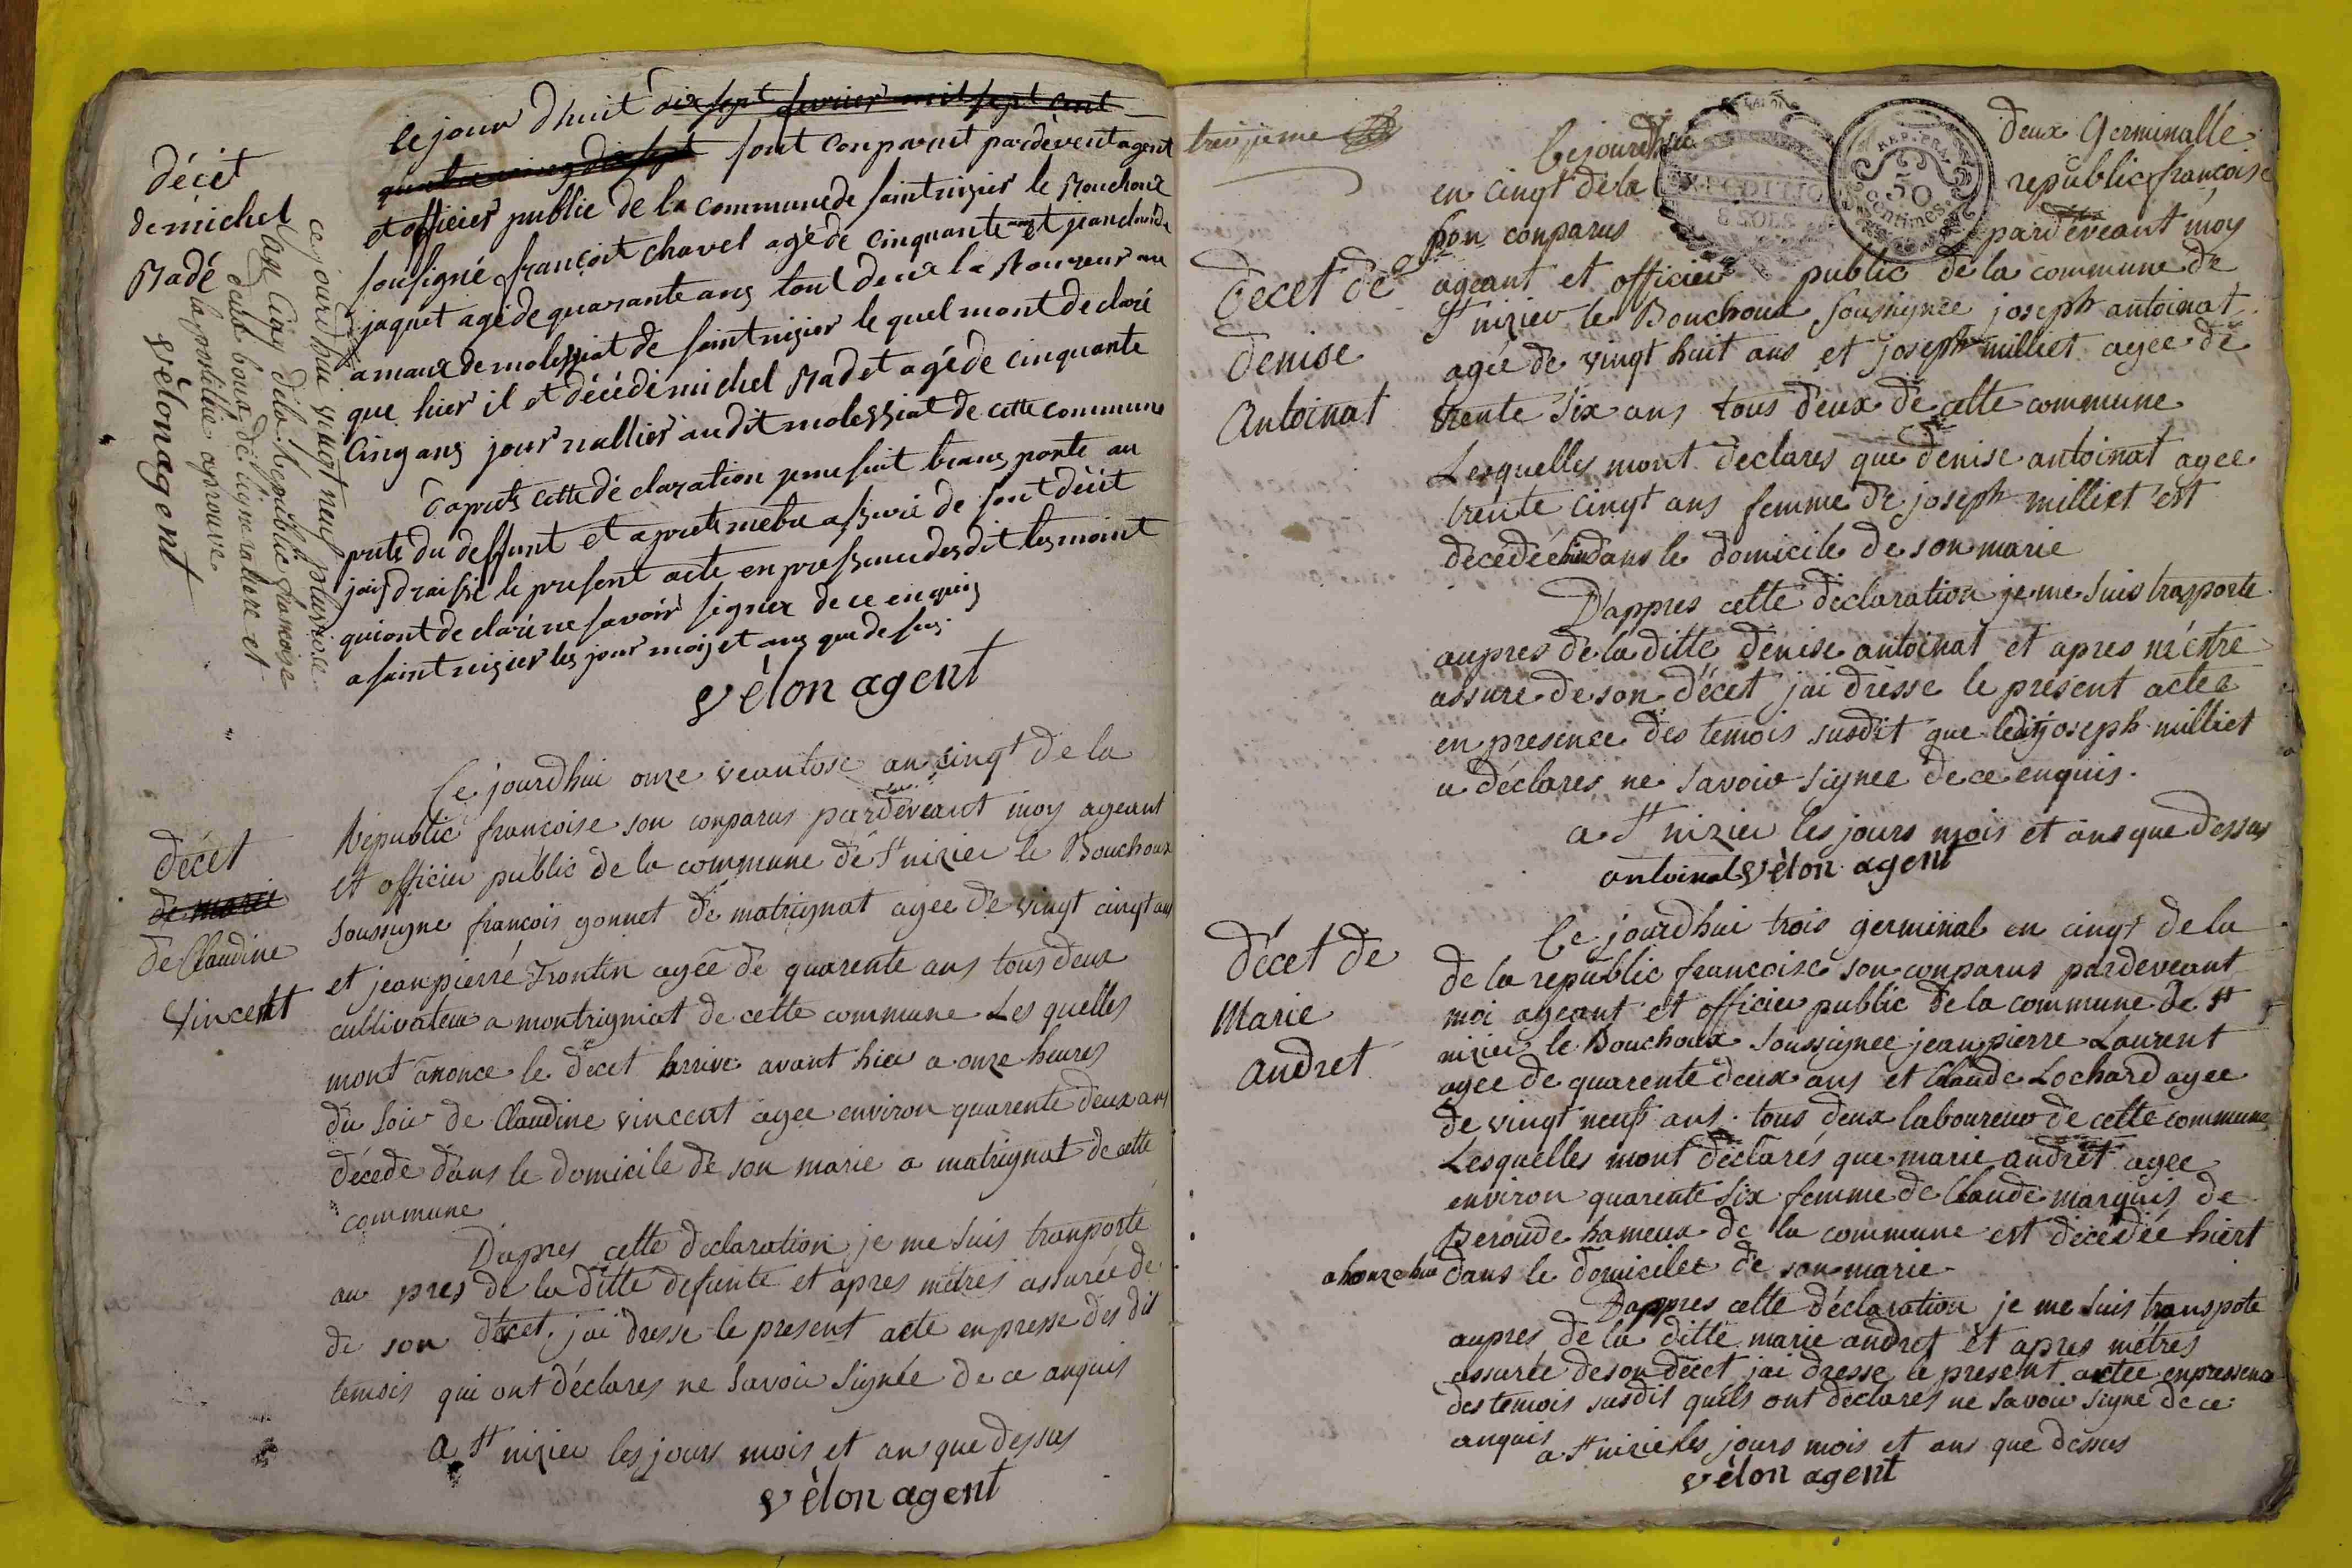 décèt
de michel
Radé
ce jourdhui vingt neuf pluviose
l'ag cinq dela Republic francoise
la postille aprouve
vèlon agent
le jour d huit dix sept fevrier mil sept cent
quatre vingt dix sept sont conparut pardevent agent
et officier public de la commune de saint nizier le Bouchoux
sousigné françoit chavel agé de cinquante ans et jean claude
jaquet agé de quarante ans tout deux la Boureur au
amaux de molessiat de saint nizier le quel mont de claré
que hier il et décédé michel Radet agé de cinquante
cinq ans jour nallier au dit molessiat de cette commune
d aprets cette dé claration je me suit trans porte au
prets du deffunt et a prets mètre assuré de sont décit
jais draissé le present acte en pressence des dit tesmoint
qui ont de claré ne savoir signer de ce en quis
a saint nizier les jour mois et ans que de sus
vèlon agent
décét
de marie
de Claudine
Vincent
Ce jourdhui onze veantose an cinqt de la
Republic francoise son conparus pardeveant moy ageant
et officier public de la commune de St nizier le Bouchoux
soussigne francois gonnet de matrignat agee de vingt cinqt ans
et jean pierré Frontin agée de quarente ans tous deux
cultivateur a montrigniat de cette commune Les quelles
mont anonce le decet arrive avant hier a onze heures
du soir de Claudine vincent agee environ quarente deux ans
décede dans le domicile de son marie a matrignat de cette
commune
Dapres cette declaration je me suis tranporté
au pres de la ditte defunte et apres mêtres assurée de
de son décet jai dresse le present acte en presse des dit
temois qui ont déclares ne savoir signée de ce anquis
a St nizier les jours mois et ans que dessus
vèlon agent
troisieme
Ce jourdhui deux Germinalle
en cinqt de la republic francoise
son conparus pardeveant moy
EXPEDITION
8 SOLS
REP. FRA.
50
centimes
Decet de
denise
Antoinat
ageant et officier public de la commune de
St nizier le Bouchoux soussignee joseph antoinat
agée de vingt huit ans et joseph milliet agee de
trente six ans tous deux de cette commune
Lesquelles mont declares que denise antoinat agee
trente cinqt ans femme de joseph milliet est
décédée hier dans le domicile de son marie
D'appres cette declaration je me suis trasporte
aupres de la ditte denise antoinat et apres m'etre
assure de son décet jai dresse le présent acte
en presence des temois susdit que ledit joseph milliet
a déclares ne savoir signee de ce enquis.
a St nizier les jours mois et ans que dessus
antoinat vèlon agent
Décet de
Marie
andret
Ce jourdhui trois germinal en cinqt de la
de la republic francoise son conparus pardeveant
moi ageant et officier public de la commune de St
nizier le Bouchoux soussignee jean pierre Laurent
agee de quarente deux ans et Claude Lochard agee
de vingt neuf ans tous deux laboureur de cette commune
Lesquelles mont déclarés que marie andret agee
environ quarente six femme de Claude marquis de
Beroude hameux de la commune est décédée hiert
a honze hur dans le domicilee de son marie
Dappres cette déclaration je me suis transpote
aupres de la ditte marie andret et apres métres
assurée de son décet jai dresse le present actee en pressence
des temois susdit quels ont déclarés ne savoir signé de ce
anquis
a St nizie les jours mois et ans que dessus
vèlon agent